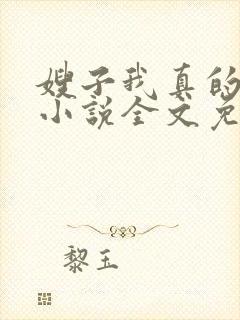 嫂子我真的
小说全文免
黎玉